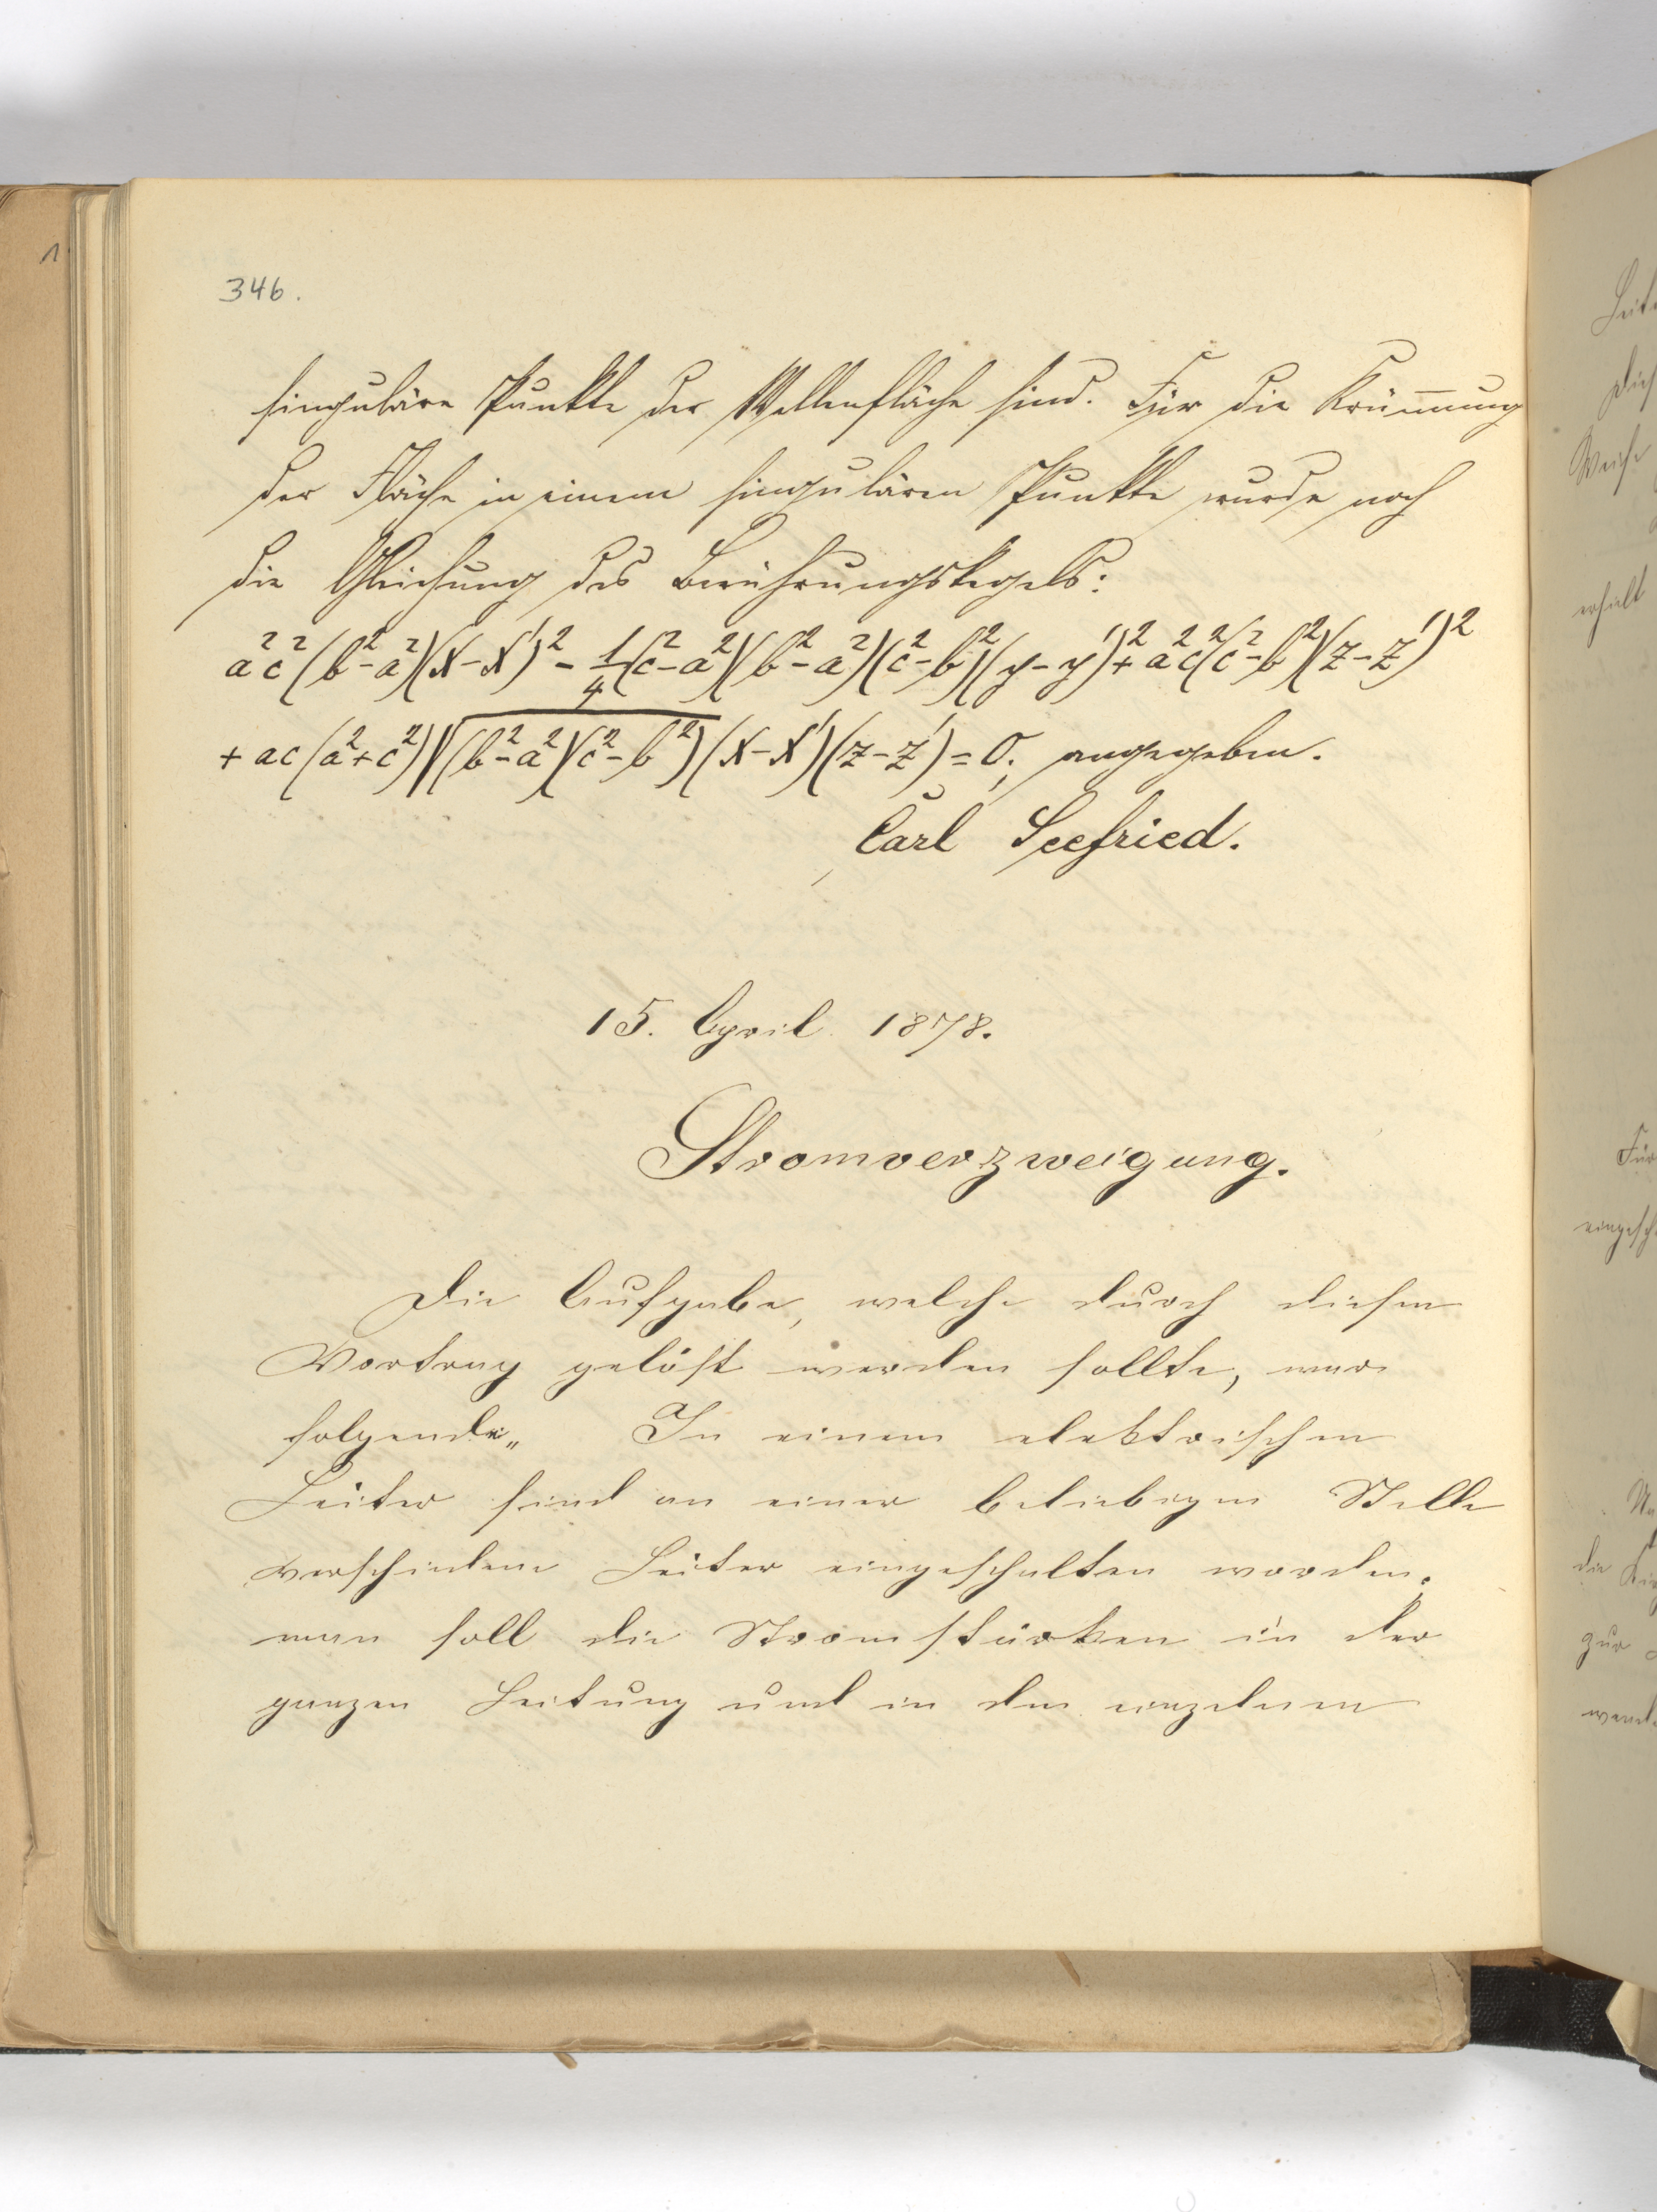 346.
singuläre Punkte der Wellenfläche sind. Für die Krümmung
der Fläche in einem singulären Punkte wurde noch
die Gleichung des Berührungskegels:
a²c²(b²-a²)(x-x')² - 1/4(c²-a²)(b²-a²)(c²-b²)(y-y')² + a²c²(c²-b²)(z-z')²
+ ac(a²+c²)√(b²-a²)(c²-b²)(x-x')(z-z') = 0; angegeben.
Carl Seefried.
15. April 1878.
Stromverzweigung.
Die Aufgabe, welche durch diesen
Vortrag gelöst werden sollte, war
folgende„ In einem elektrischen
Leiter sind an einer beliebigen Stelle
verschiedene Leiter eingeschalten worden.
man soll die Stromstärken in der
ganzen Leitung und in den einzelnen